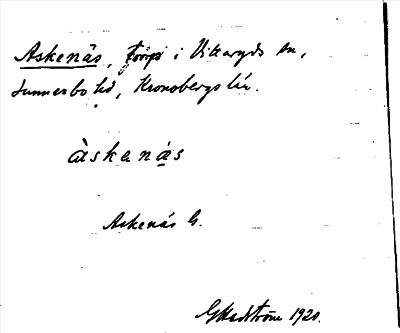 Askenäs, Torp i Vittaryds sn,
Sunnerbo hd, Kronobergs län.
àskenás
Askenäs G.
G Hedström 1920.